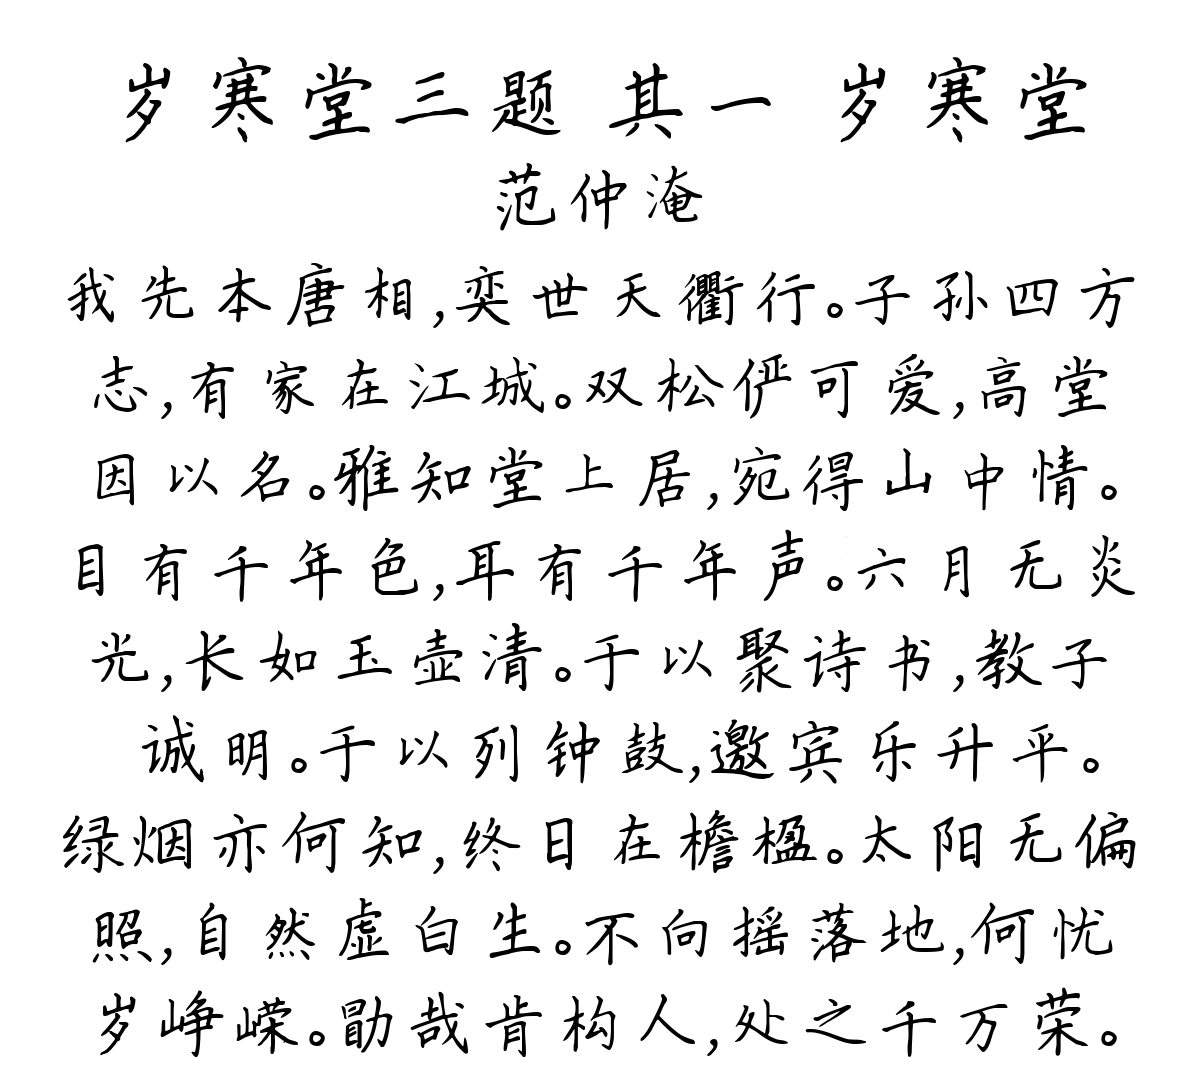 岁寒堂三题 其一 岁寒堂
范仲淹
我先本唐相,奕世天衢行。子孙四方
志,有家在江城。双松俨可爱,高堂
因以名。雅知堂上居,宛得山中情。
目有千年色,耳有千年声。六月无炎
光,长如玉壶清。于以聚诗书,教子
诚明。于以列钟鼓,邀宾乐升平。
绿烟亦何知,终日在檐楹。太阳无偏
照,自然虚白生。不向摇落地,何忧
岁峥嵘。勖哉肯构人,处之千万荣。